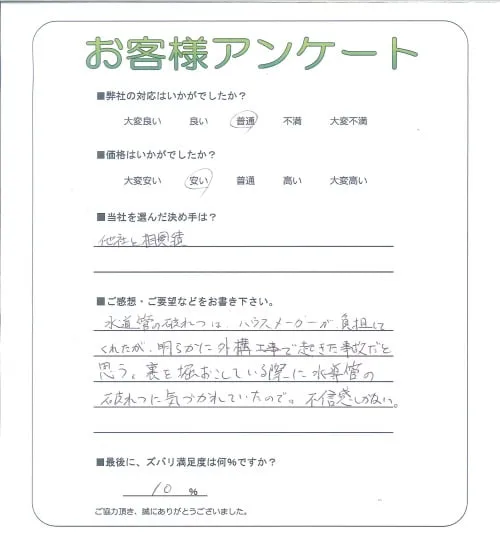 お客様アンケート
■弊社の対応はいかがでしたか？
大変良い 良い 普通 不満 大変不満
■価格はいかがでしたか？
大変安い 安い 普通 高い 大変高い
■当社を選んだ決め手は？
他社と相見積
■ご感想・ご要望などをお書き下さい。
水道管の破れつは、ハウスメーカーが負担して
くれたが、明らかに外構工事で起きた事故だと
思う。裏を掘おこしている際に水導管の
破れつに気づかれていたので。不信感しかない。
■最後に、ズバリ満足度は何%ですか？
10 %
ご協力頂き、誠にありがとうございました。